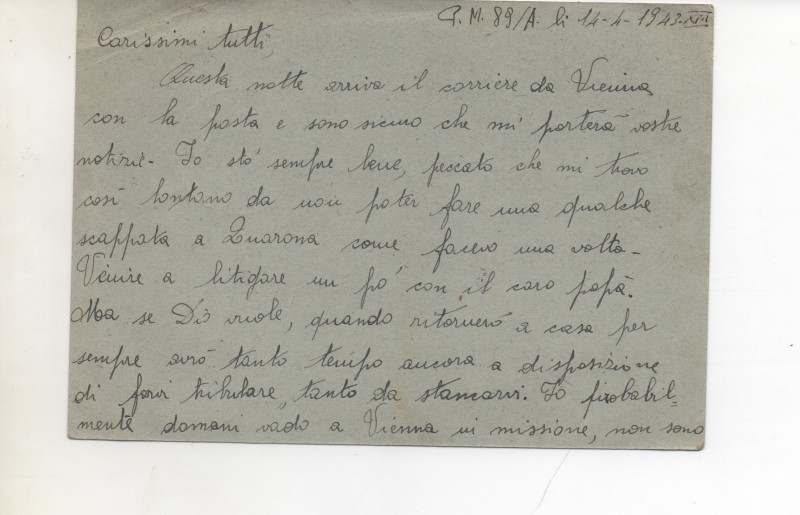 P.M. 89/A. li 14-4-1943-XXI
Carissimi tutti,
Questa notte arriva il corriere da Vienna
con la posta e sono sicuro che mi porterà vostre
notizie. Io stò sempre bene, peccato che mi trovo
così lontano da non poter fare una qualche
scappata a Quarona come facevo una volta-
Venire a litigare un pò con il caro papà.
Ma se Dio vuole, quando ritornerò a casa per
sempre avrò tanto tempo ancora a disposizione
di farvi tribulare, tanto da stancarvi. Io probabil=
mente domani vado a Vienna in missione, non sono